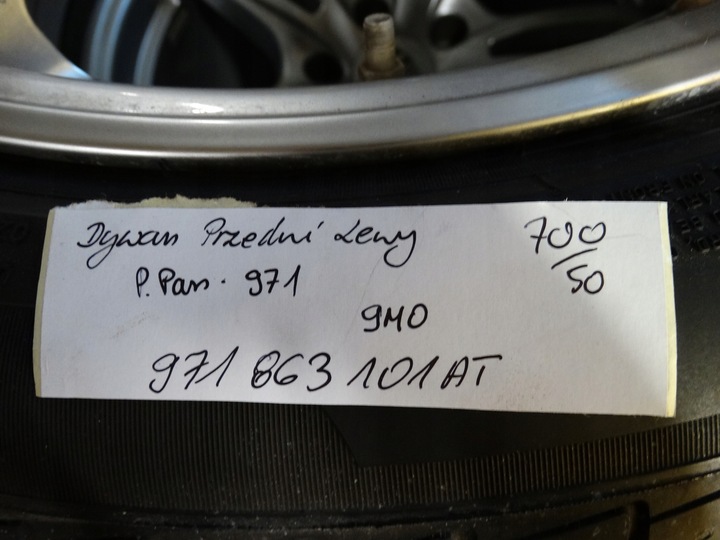 Dywan Przedni Lewy 700/50
P. Pan. 971
9M0
971 863 101 AT